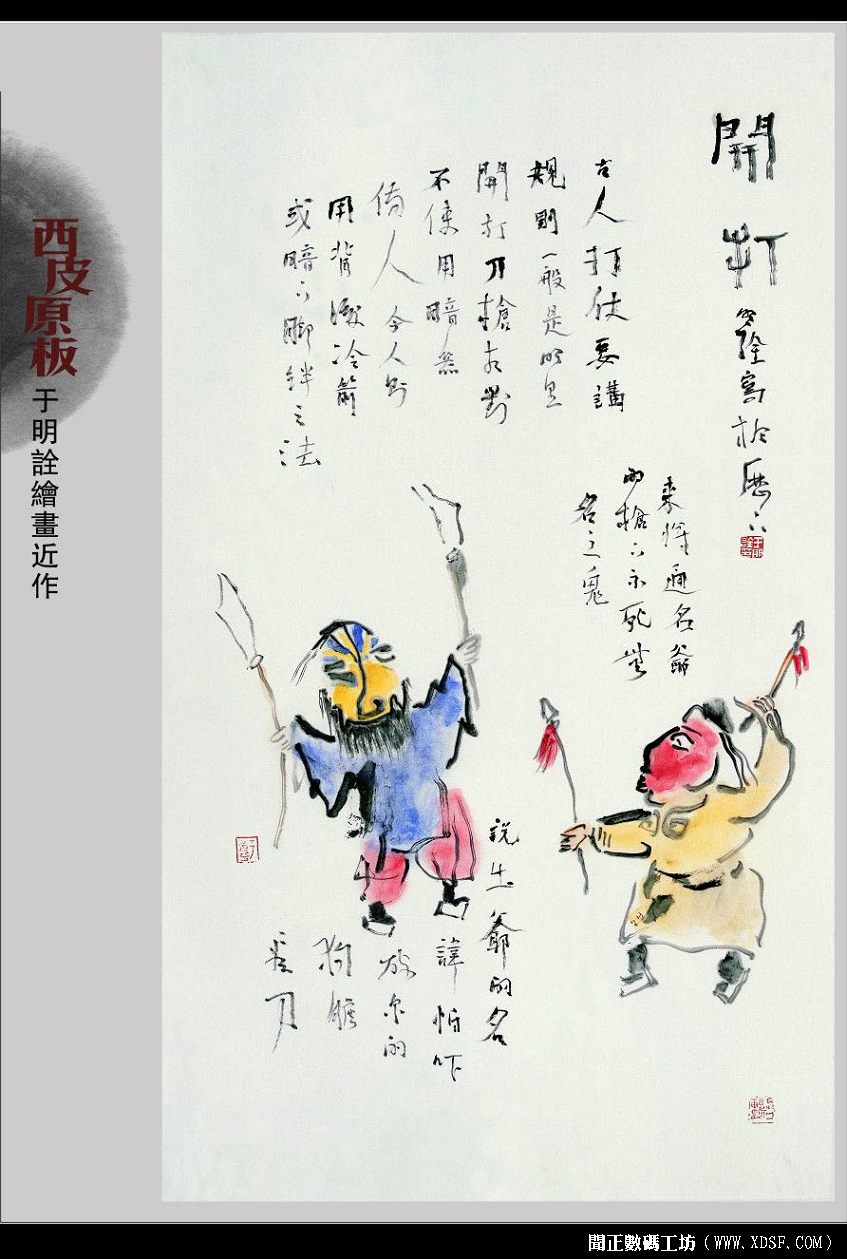 西皮原板
于明詮繪畫近作
開打
明詮寫於歷下
古人打仗要講
規則一般是明
開打刀槍相對
不使用暗器
傷人今人則
用背後冷箭
或暗下腳絆之法
來將通名爺
的槍下不死無
名之鬼
說出爺的名
諱怕吓
破尔的
狗膽
看刀
聞正數碼工坊（WWW.XDSF.COM）